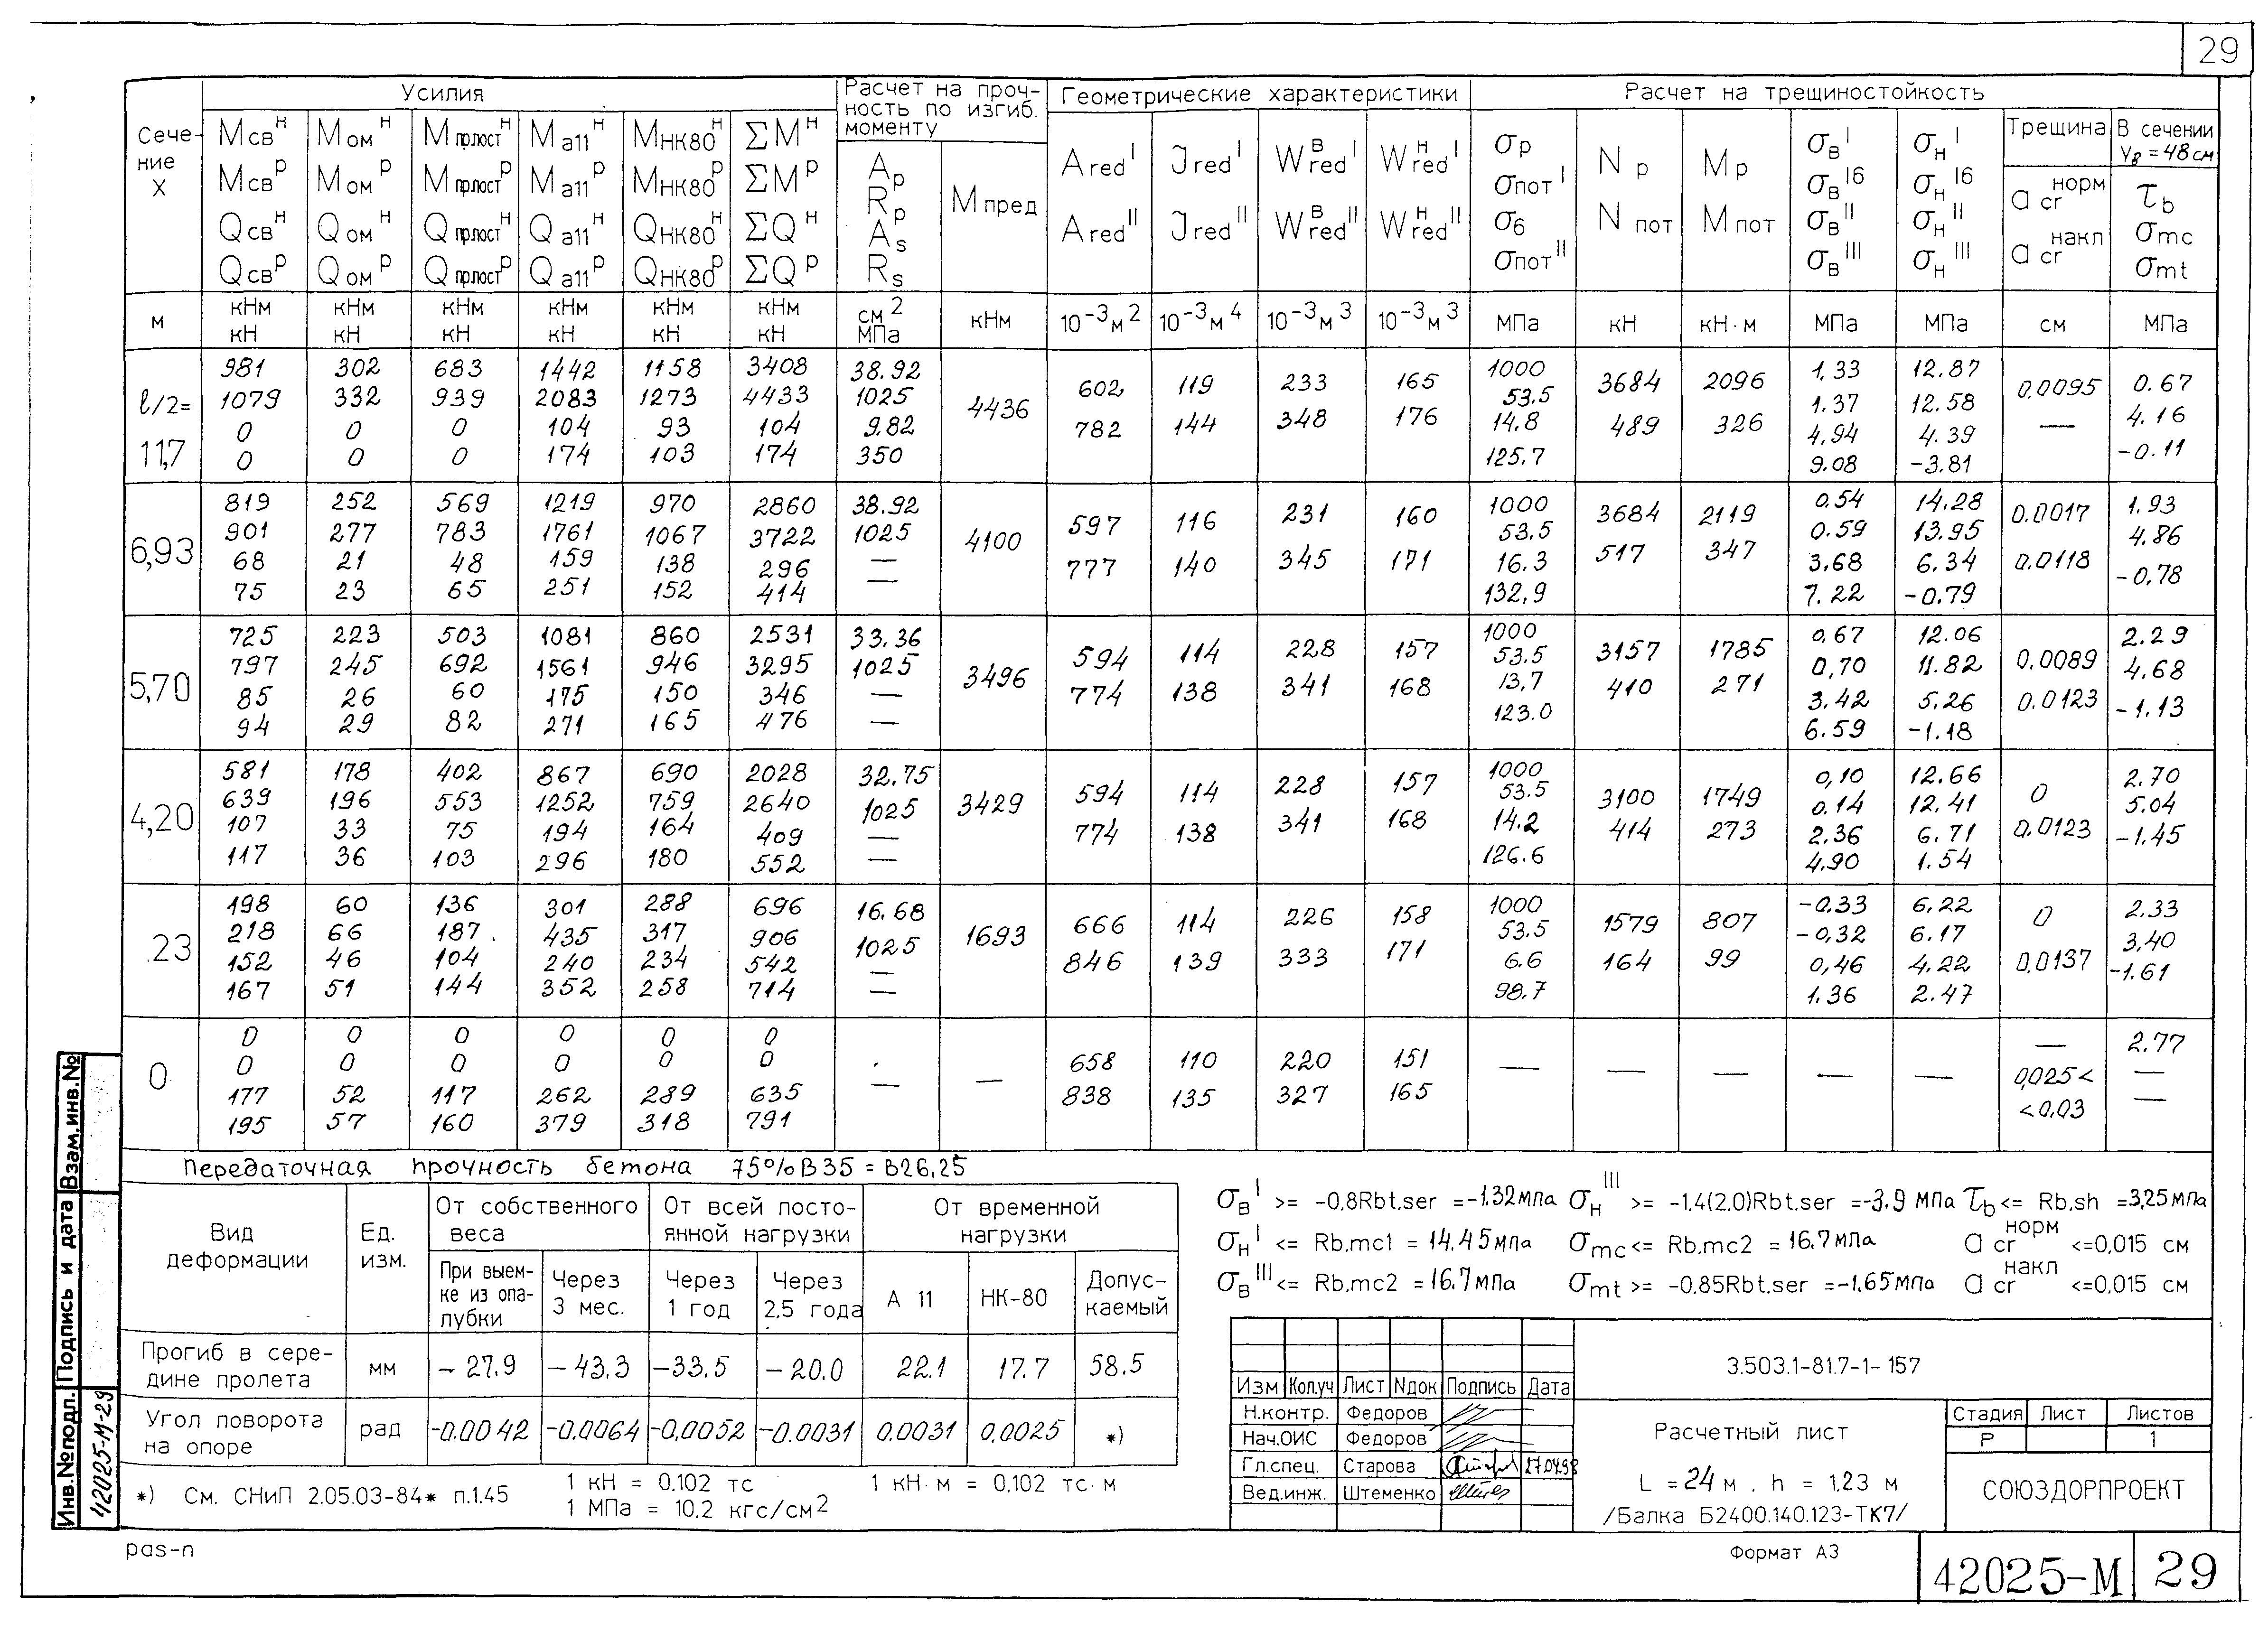 29
Сечение X
Усилия
Расчет на прочность по изгиб. моменту
Геометрические характеристики
Расчет на трещиностойкость
Mсвᴴ Mомᴴ Mпрлостᴴ Mа11ᴴ MНК80ᴴ ΣMᴴ
Mсвᴾ Mомᴾ Mпрлостᴾ Mа11ᴾ MНК80ᴾ ΣMᴾ
Qсвᴴ Qомᴴ Qпрлостᴴ Qа11ᴴ QНК80ᴴ ΣQᴴ
Qсвᴾ Qомᴾ Qпрлостᴾ Qа11ᴾ QНК80ᴾ ΣQᴾ
Ap Rp As Rs
Mпред
Ared I Ared II
Jred I Jred II
Wᴮred I Wᴮred II
Wᴴred I Wᴴred II
σp σпот I σб σпот II
Np Nпот
Mp Mпот
σв I σв Iб σв II σв III
σн I σн Iб σн II σн III
Трещина
a cr норм
a cr накл
В сечении yв = 48 см
τb σmc σmt
м кНм кН кНм кН кНм кН кНм кН кНм кН кНм кН см² МПа кНм 10⁻³м² 10⁻³м⁴ 10⁻³м³ 10⁻³м³ МПа кН кН·м МПа МПа см МПа
ℓ/2= 11,7
981 302 683 1442 1158 3408 38.92
1079 332 939 2083 1273 4433 1025
0 0 0 104 93 104 9.82
0 0 0 174 103 174 350
4436
602 119 233 165
782 144 348 176
1000 53.5 14.8 125.7
3684 2096
489 326
1,33 12.87
1.37 12.58
4,94 4.39
9.08 -3.81
0,0095 —
0.67 4.16 -0.11
6,93
819 252 569 1219 970 2860 38.92
901 277 783 1761 1067 3722 1025
68 21 48 159 138 296 —
75 23 65 251 152 414 —
4100
597 116 231 160
777 140 345 171
1000 53.5 16.3 132,9
3684 2119
517 347
0,54 14.28
0.59 13.95
3,68 6.34
7.22 -0.79
0.0017 0.0118
1.93 4.86 -0,78
5,70
725 223 503 1081 860 2531 33.36
797 245 692 1561 946 3295 1025
85 26 60 175 150 346 —
94 29 82 271 165 476 —
3496
594 114 228 157
774 138 341 168
1000 53.5 13,7 123.0
3157 1785
410 271
0,67 12.06
0,70 11.82
3.42 5,26
6.59 -1.18
0,0089 0.0123
2.29 4.68 -1.13
4,20
581 178 402 867 690 2028 32.75
639 196 553 1252 759 2640 1025
107 33 75 194 164 409 —
117 36 103 296 180 552 —
3429
594 114 228 157
774 138 341 168
1000 53.5 14.2 126.6
3100 1749
414 273
0,10 12.66
0.14 12,41
2.36 6.71
4,90 1.54
0 0.0123
2.70 5.04 -1.45
.23
198 60 136 301 288 696 16.68
218 66 187 435 317 906 1025
152 46 104 240 234 542 —
167 51 144 352 258 714 —
1693
666 114 226 158
846 139 333 171
1000 53.5 6.6 98.7
1579 807
164 99
-0.33 6,22
-0,32 6.17
0,46 4.22
1.36 2.47
0 0,0137
2.33 3,40 -1.61
0
0 0 0 0 0 0
0 0 0 0 0 0
177 52 117 262 289 635
195 57 160 379 318 791
— —
658 110 220 151
838 135 327 165
— — — — —
— 0,025< <0,03
2.77 — —
Передаточная прочность бетона 75% В35 = В26,25
Вид деформации
Ед. изм.
От собственного веса
От всей постоянной нагрузки
От временной нагрузки
При выемке из опалубки
Через 3 мес.
Через 1 год
Через 2,5 года
А 11
НК-80
Допускаемый
Прогиб в середине пролета мм -27.9 -43.3 -33.5 -20.0 22.1 17.7 58.5
Угол поворота на опоре рад -0.0042 -0,0064 -0,0052 -0.0031 0.0031 0,0025 *)
*) См. СНиП 2.05.03-84* п.1.45
1 кН = 0.102 тс
1 МПа = 10,2 кгс/см²
1 кН·м = 0,102 тс·м
σв I >= -0.8Rbt,ser = -1,32 МПа σн III >= -1.4(2.0)Rbt,ser = -3.9 МПа τb <= Rb,sh = 3,25 МПа
σн I <= Rb,mc1 = 14.45 МПа σmc <= Rb,mc2 = 16.7 МПа a cr норм <=0,015 см
σв III <= Rb,mc2 = 16.7 МПа σmt >= -0,85Rbt,ser = -1.65 МПа a cr накл <=0,015 см
Изм Кол.уч Лист Nдок Подпись Дата
Н.контр. Федоров
Нач.ОИС Федоров
Гл.спец. Старова 27.04.98
Вед.инж. Штеменко
3.503.1-81.7-1-157
Расчетный лист
L = 24 м , h = 1,23 м
/Балка Б2400.140.123-ТК7/
Стадия Лист Листов
Р 1
СОЮЗДОРПРОЕКТ
Инв.№подл. Подпись и дата Взам.инв.№
42025-М-29
pas-n
Формат А3
42025-М 29